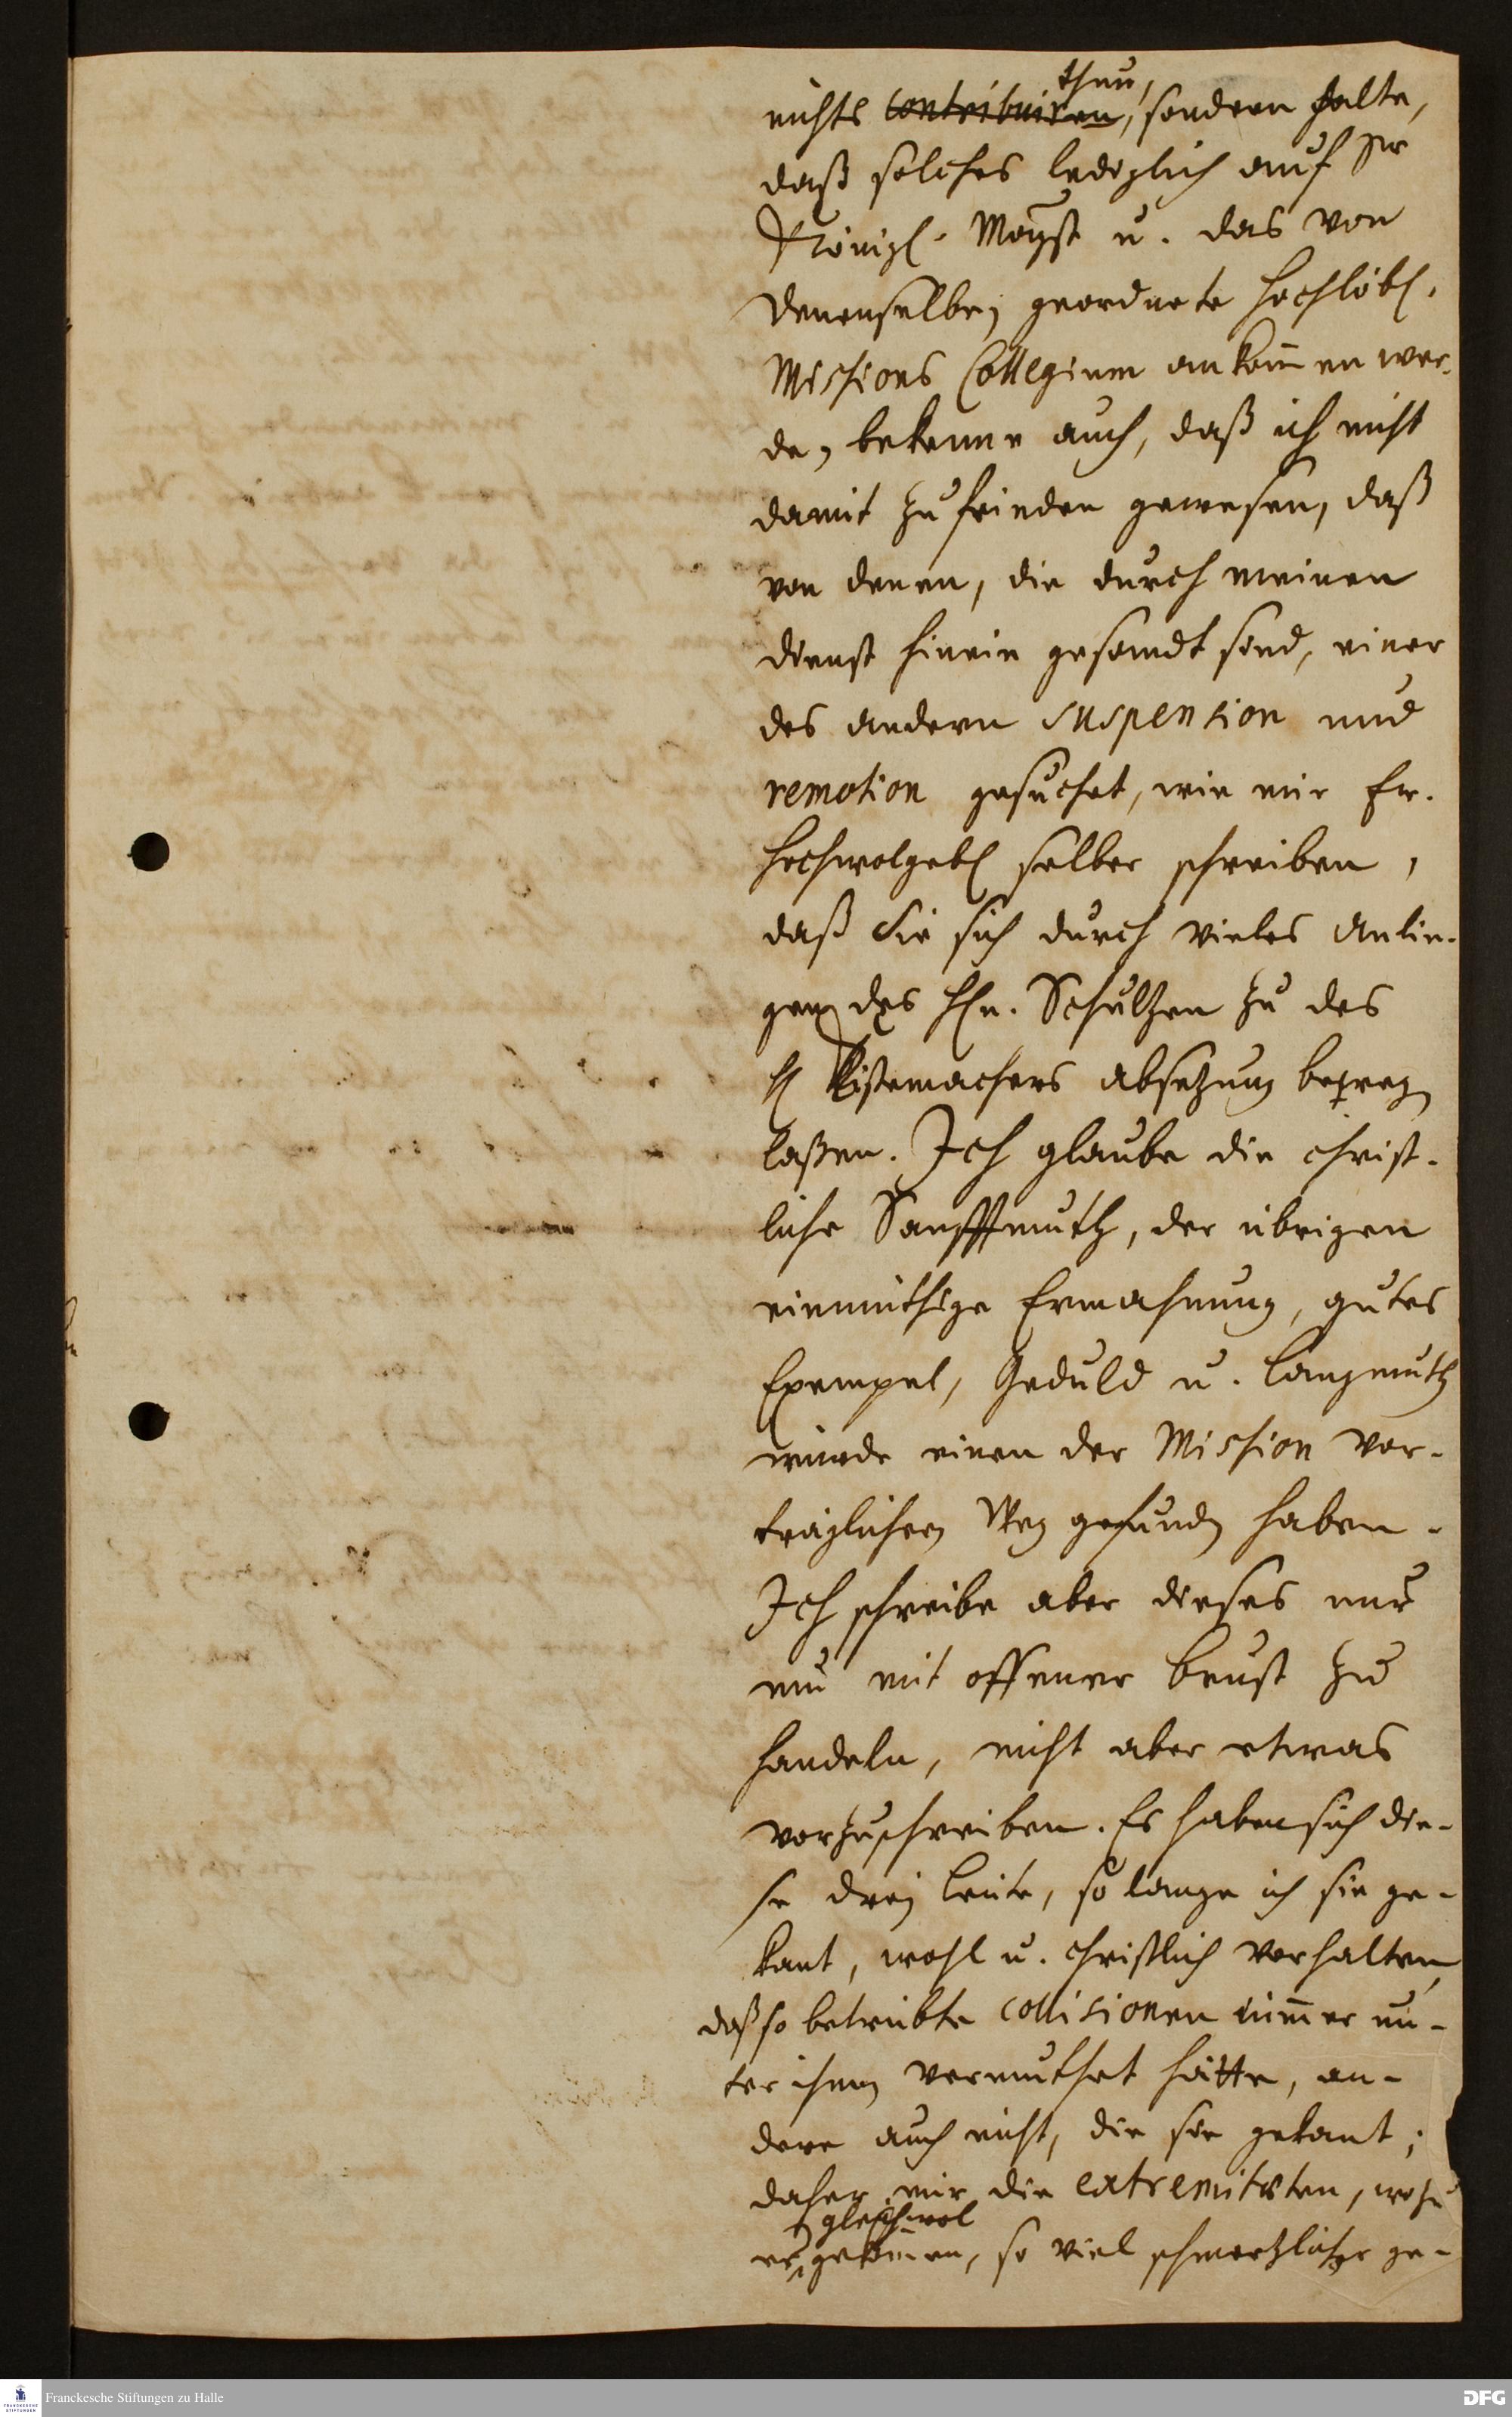 thun,
nichts contribuiren, sondern halte,
daß solches lediglich auf Sr
Königl. Mayst u. das von
denenselben geordnete hochlöbl.
Missions Collegium ankom̄en wer-
de, bekenne auch, daß ich nicht
damit zufrieden gewesen, daß
von denen, die durch meinen
dienst hinein gesandt sind, einer
des andern suspension und
remotion gesuchet, wie mir Ew.
Hochwolgebl selber schreiben,
daß Sie sich durch vieles Anlie-
gen des Hn. Schultzen zu des
H Kistemachers absetzung bewegen
laßen. Ich glaube die christ-
liche Sanfftmuth, der übrigen
einmüthige Ermahnung, gutes
Exempel, Geduld u. Langmuth
würde einen der Mission vor-
träglichern Weg gefunden haben.
Ich schreibe aber dieses nur
um mit offener brust zu
handeln, nicht aber etwas
vorzuschreiben. Es haben sich die-
se drej Leute, so lange ich sie ge-
kant, wohl u. christlich verhalten,
daß so betrübte collisionen nim̄er un-
ter ihnen vermuthet hätte, an-
dere auch nicht, die sie gekant;
daher mir die extremitæten, wozu
gleichwol
es gekom̄en, so viel schmertzlicher ge-
Franckesche Stiftungen zu Halle
DFG